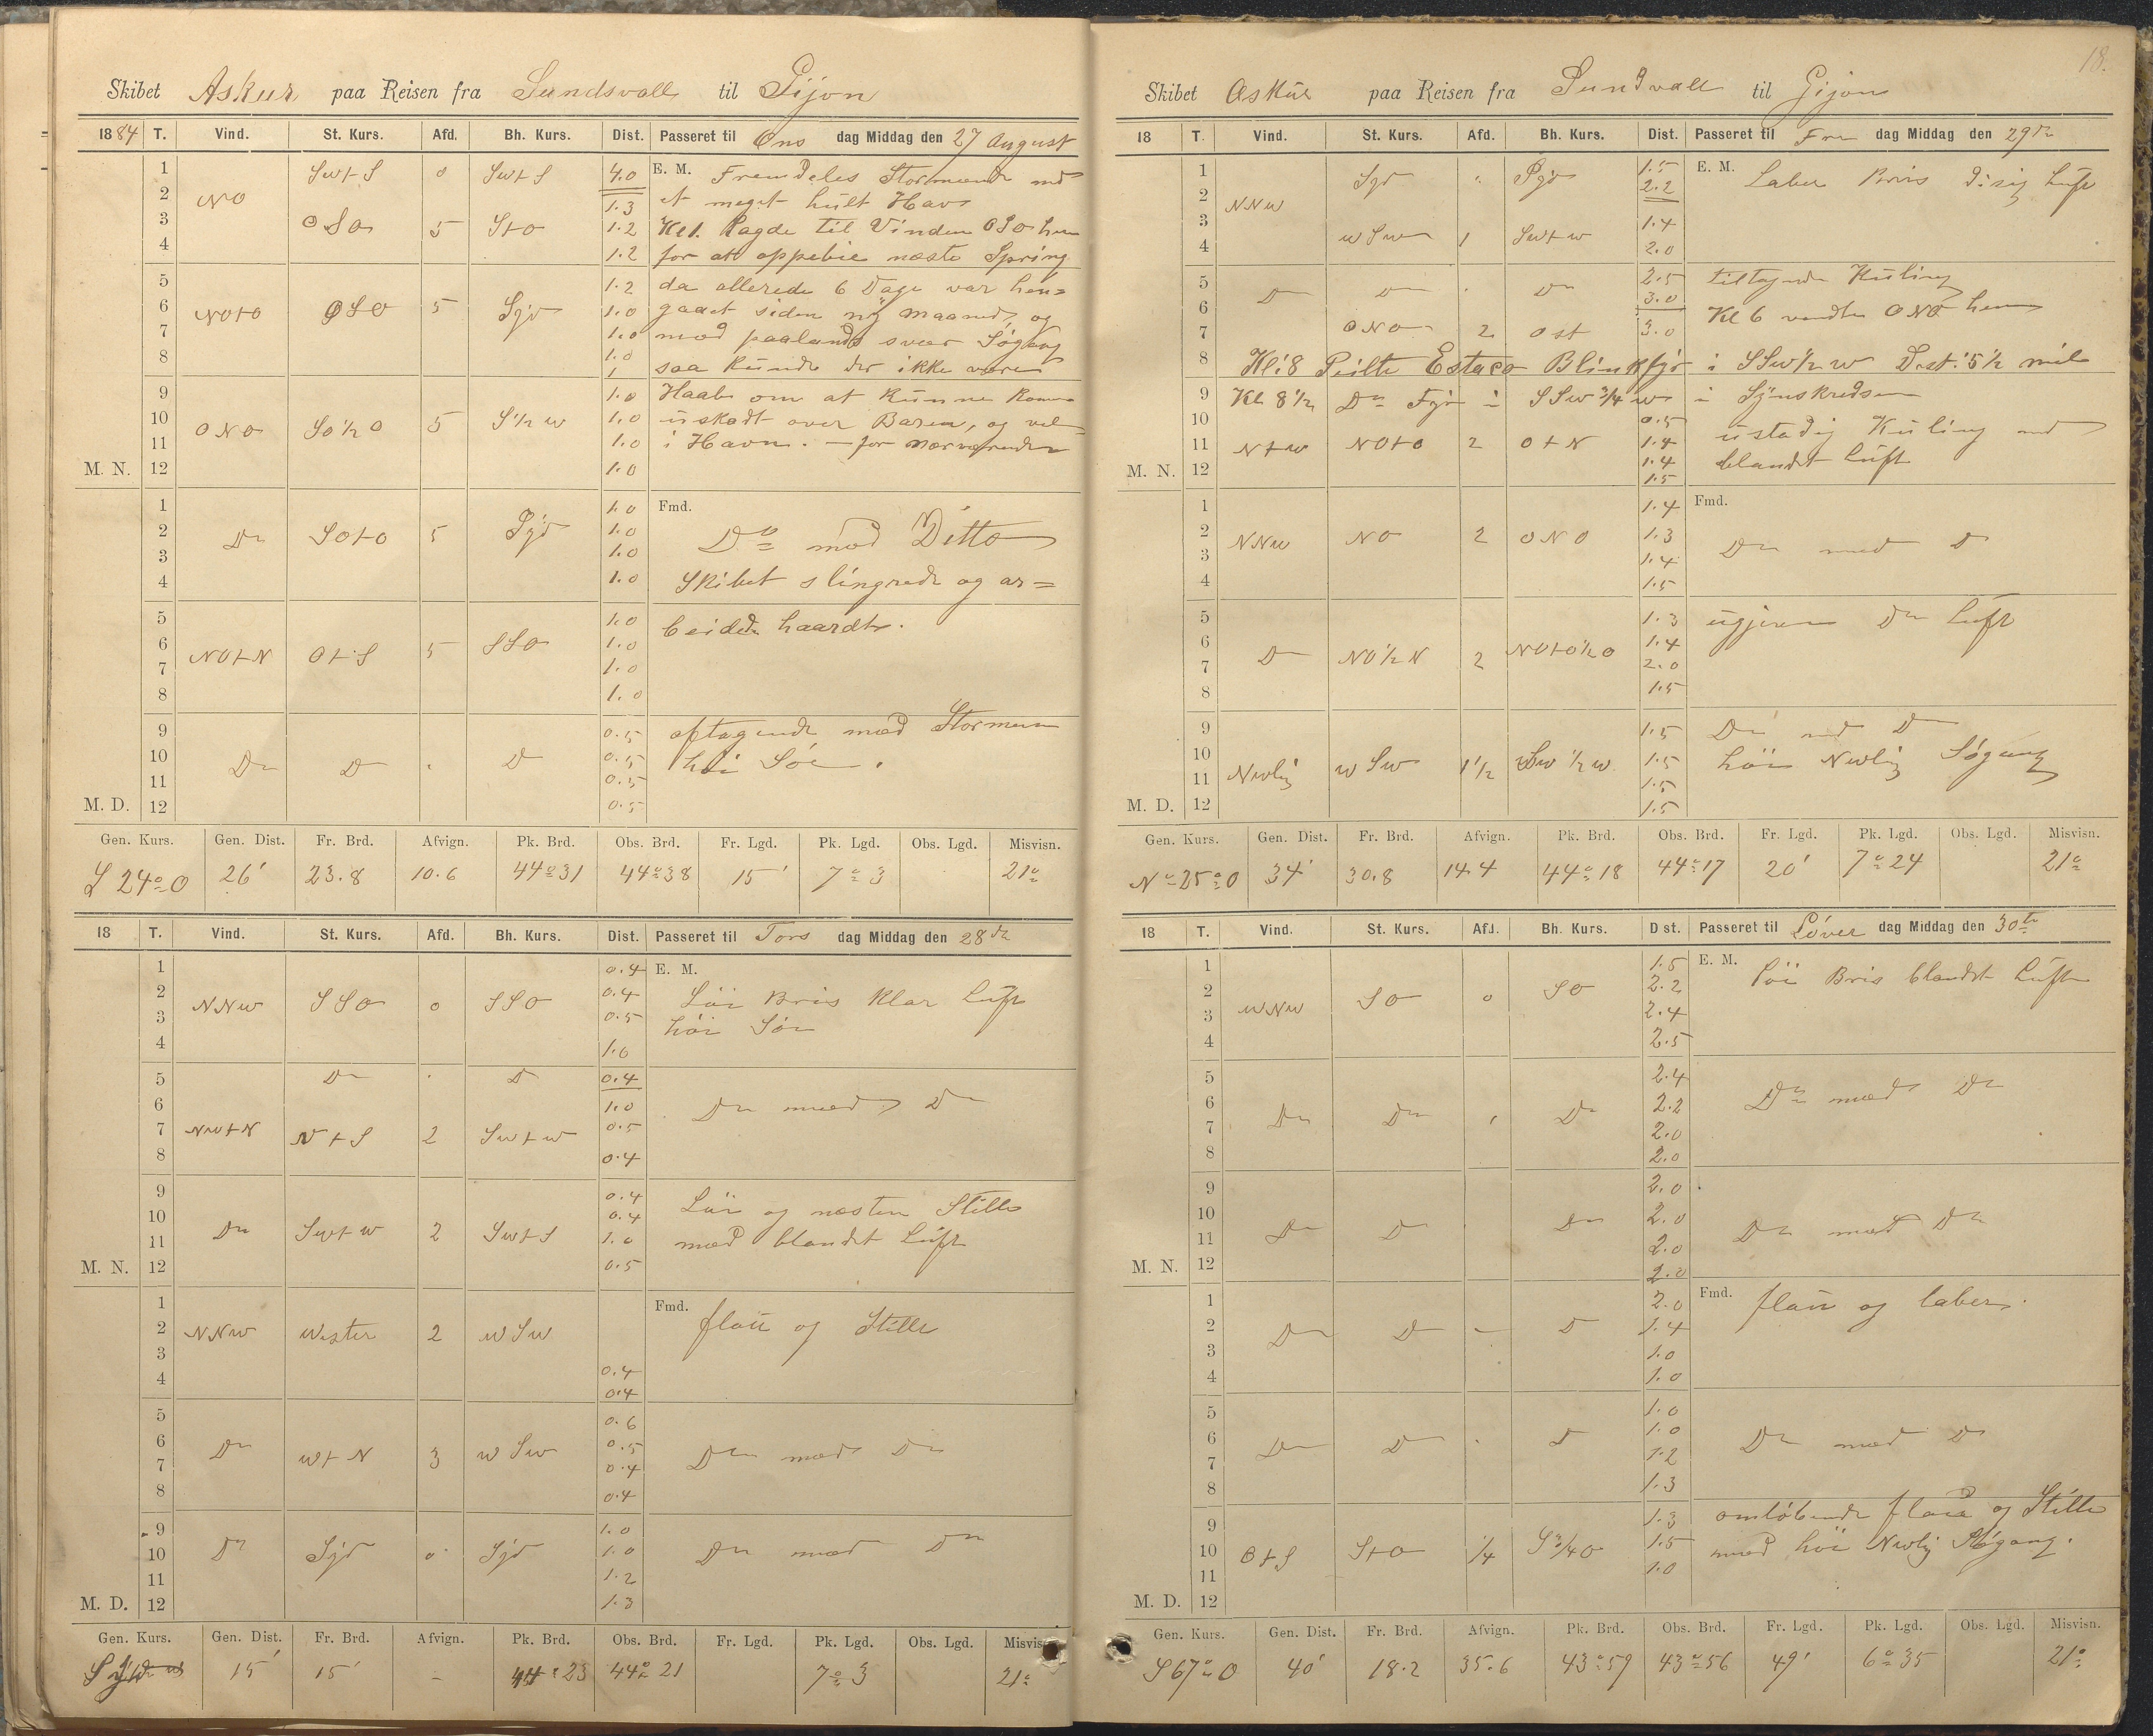 Skibet Askur paa Reisen fra Sundsvall til Gijon
1884 T. Vind. St. Kurs. Afd. Bh. Kurs. Dist. Passeret til Ons dag Middag den 27 August
1 SwtS 0 SwtS 4.0 E. M. Fremdeles Stormende med
2 NO 1.3 et meget hult Hav
3 OSO 5 StO 1.2 Kl 1. lagde til Vinden OSO hen
4 1.2 for at oppebie næste Spring
5 1.2 da allerede 6 Dage var hen=
6 NOtO OSO 5 Syd 1.0 gaaet siden ny Maaned, og
7 1.0 med paalands svær Søgang
8 1.0 saa kunde der ikke være
9 1.0 Haab om at kunne komme
10 ONO SO½O 5 S½w 1.0 uskadt over Baren, og vel
11 1.0 i Havn. — for nærværende
M. N. 12 1.0
1 1.0 Fmd.
2 Do SOtO 5 Syd 1.0 Do med Ditto
3 1.0
4 1.0 Skibet slingrede og ar=
5 1.0 beidede haardt.
6 NOtN OtS 5 SSO 1.0
7 1.0
8 1.0
9 0.5 aftagende med Stormen
10 Do Do Do 0.5 høi Søe.
11 0.5
M. D. 12 0.5
Gen. Kurs. Gen. Dist. Fr. Brd. Afvign. Pk. Brd. Obs. Brd. Fr. Lgd. Pk. Lgd. Obs. Lgd. Misvisn.
S 24° O 26' 23.8 10.6 44°31 44°38 15' 7°3 21°
18 T. Vind. St. Kurs. Afd. Bh. Kurs. Dist. Passeret til Tors dag Middag den 28de
1 0.4 E. M.
2 NNw SSO 0 SSO 0.4 Løi Bris klar Luft
3 0.5 høi Søe
4 1.0
5 Do Do 0.4
6 1.0 Do med Do
7 NwtN wtS 2 Swtw 0.5
8 0.4
9 0.4 Løi og næsten Stille
10 Do Swtw 2 SwtS 0.4
11 1.0 med blandet Luft
M. N. 12 0.5
1 Fmd. flau og Stille
2 NNw Wester 2 wSw
3 0.4
4 0.4
5 0.6
6 Do wtN 3 wSw 0.5 Do med Do
7 0.4
8 0.4
9 1.0
10 Do Syd 0 Syd 1.0 Do med Do
11 1.2
M. D. 12 1.3
Gen. Kurs. Gen. Dist. Fr. Brd. Afvign. Pk. Brd. Obs. Brd. Fr. Lgd. Pk. Lgd. Obs. Lgd. Misvisn.
Syd 15' 15' – 44°23 44°21 7°3 21°
18.
Skibet Askur paa Reisen fra Sundsvall til Gijon
18 T. Vind. St. Kurs. Afd. Bh. Kurs. Dist. Passeret til Fre dag Middag den 29de
1 Syd Syd 1.5 E. M. Laber Bris disig Luft
2 NNw 2.2
3 wSw 1 Swtw 1.4
4 2.0
5 Do Do Do 2.5 tiltagende Kuling
6 3.0 Kl 6 vendte ONO hen
7 ONO 2 Ost 3.0
8 Kl: 8 Peilte Estaca Blinkfyr i SSw½w Dist: 5½ mil
9 Kl 8½ Do Fyr i SSw¾w i Synskredsen
10 0.5 ustadig Kuling med
11 Ntw NOtO 2 OtN 1.4 blandet Luft
1.4
M. N. 12 1.5
1 1.4 Fmd.
2 NNw NO 2 ONO 1.3 Do med Do
3 1.4
4 1.5
5 1.3 ugjeven Do Luft
6 Do NO½N 2 NOtO½O 1.4
7 2.0
8 1.5
9 1.5 Do med Do
10 Nwlig wSw 1½ Sw½w 1.5 høi Nwlig Søgang
11 1.5
M. D. 12 1.5
Gen. Kurs. Gen. Dist. Fr. Brd. Afvign. Pk. Brd. Obs. Brd. Fr. Lgd. Pk. Lgd. Obs. Lgd. Misvisn.
N 25° O 34' 30.8 14.4 44°18 44°17 20' 7°24 21°
18 T. Vind. St. Kurs. Afd. Bh. Kurs. Dist. Passeret til Løver dag Middag den 30te
1 1.5 E. M. Løi Bris blandet Luft
2 wNw SO 0 SO 2.2
3 2.4
4 2.5
5 2.4
6 Do Do Do 2.2 Do med Do
7 2.0
8 2.0
9 2.0
10 Do Do Do 2.0 Do med Do
11 2.0
M. N. 12 2.0
1 2.0 Fmd. flau og laber.
2 Do Do Do 1.4
3 1.0
4 1.0
5 1.0
6 Do Do Do 1.0 Do med Do
7 1.2
8 1.3
9 1.3 omløbende flau og Stille
10 OtS StO ¼ S¾O 1.5 med høi Nwlig Søgang.
11 1.0
M. D. 12
Gen. Kurs. Gen. Dist. Fr. Brd. Afvign. Pk. Brd. Obs. Brd. Fr. Lgd. Pk. Lgd. Obs. Lgd. Misvisn.
S 67° O 40' 18.2 35.6 43°59 43°56 49' 6°35 21°